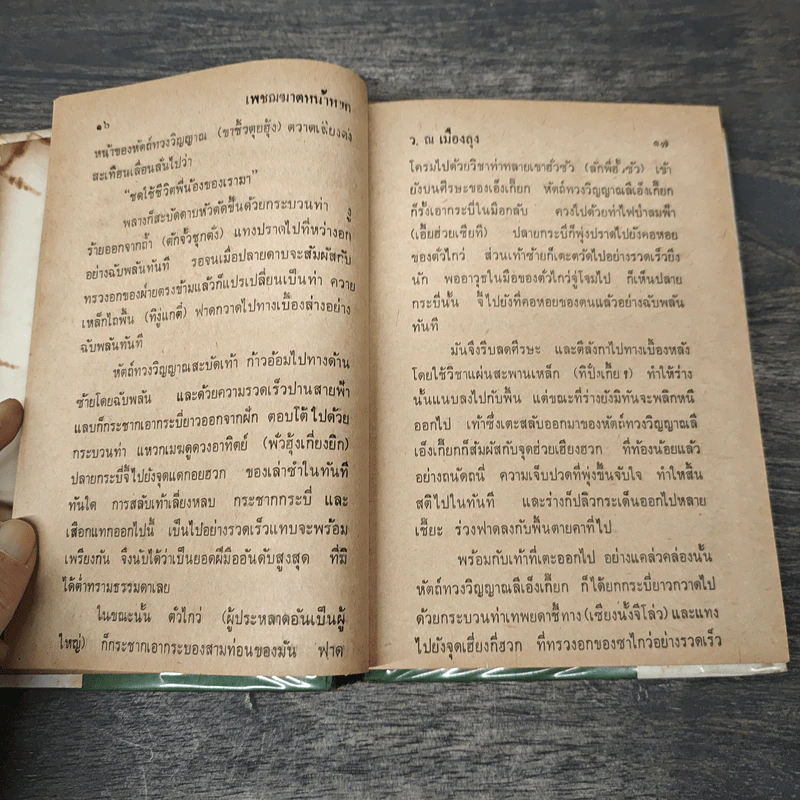 เพชฌฆาตหน้าหยก
๑๖
หน้าของหัตถ์ทวงวิญญาณ (ขาซิ้วตุยฮุ้ง) ตวาดเสียงดัง
สะเทือนเลื่อนลั่นไปว่า
“ชดใช้ชีวิตพี่น้องของเรามา”
พลางก็สะบัดดาบหัวตัดขึ้นด้วยกระบวนท่า งู
ร้ายออกจากถ้ำ (ตักจั้วชุกตั่ง) แทงปราดไปที่หว่างอก
อย่างฉับพลันทันที รอจนเมื่อปลายดาบจะสัมผัสกับ
ทรวงอกของฝ่ายตรงข้ามแล้วก็แปรเปลี่ยนเป็นท่า ควาย
เหล็กไถพื้น (ทิงู่แกตี่) ฟาดกวาดไปทางเบื้องล่างอย่าง
ฉับพลันทันที
หัตถ์ทวงวิญญาณสะบัดเท้า ก้าวอ้อมไปทางด้าน
ซ้ายโดยฉับพลัน และด้วยความรวดเร็วปานสายฟ้า
แลบก็กระชากเอากระบี่ยาวออกจากฝัก ตอบโต้ไปด้วย
กระบวนท่า แหวกเมฆดูดวงอาทิตย์ (พั่วฮุ้งเกี่ยงยิก)
ปลายกระบี่จี้ไปยังจุดแตกอยฮวก ของเล่าซำในทันที
ทันใด การสลับเท้าเลี่ยงหลบ กระชากกระบี่ และ
เสือกแทงออกไปนี้ เป็นไปอย่างรวดเร็วแทบจะพร้อม
เพรียงกัน จึงนับได้ว่าเป็นยอดฝีมืออันดับสูงสุด ที่มิ
ได้ต่ำทรามธรรมดาเลย
ในขณะนั้น ตั่วไกว่ (ผู้ประหลาดอันเป็นผู้
ใหญ่) ก็กระชากเอากระบองสามท่อนของมัน ฟาด
ว. ณ เมืองลุง
๑๗
โครมไปด้วยวิชาท่าทลายเขาฮั่วซัว (ลักพี่ฮั้วซัว) เข้า
ยังบนศีรษะของเอ็งเกี๊ยก หัตถ์ทวงวิญญาณลีเอ็งเกี๊ยก
ก็รั้งเอากระบี่ในมือกลับ ควงไปด้วยท่าไฟป่าลมฟ้า
(เอี้ยฮ่วยเซียที) ปลายกระบี่ก็พุ่งปราดไปยังคอหอย
ของตั่วไกว่ ส่วนเท้าซ้ายก็เตะตวัดไปอย่างรวดเร็วยิ่ง
นัก พออาวุธในมือของตั่วไกว่จู่โจมไป ก็เห็นปลาย
กระบี่นั้น จี้ไปยังที่คอหอยของตนแล้วอย่างฉับพลัน
ทันที
มันจึงรีบลดศีรษะ และตีลังกาไปทางเบื้องหลัง
โดยใช้วิชาแผ่นสะพานเหล็ก ทำให้ร่าง
นั้นแนบลงไปกับพื้น แต่ขณะที่ร่างยังมิทันจะพลิกหนี
ออกไป เท้าซึ่งเตะสลับออกมาของหัตถ์ทวงวิญญาณลี
เอ็งเกี๊ยกก็สัมผัสกับจุดฮ่วยเฮียงฮวก ที่ท้องน้อยแล้ว
อย่างถนัดถนี่ ความเจ็บปวดที่พุ่งขึ้นจับใจ ทำให้สิ้น
สติไปในทันที และร่างก็ปลิวกระเด็นออกไปหลาย
เชี๊ยะ ร่วงฟาดลงกับพื้นตายคาที่ไป
พร้อมกับเท้าที่เตะออกไป อย่างแคล่วคล่องนั้น
หัตถ์ทวงวิญญาณลีเอ็งเกี๊ยก ก็ได้ยกกระบี่ยาวกวาดไป
ด้วยกระบวนท่าเทพยดาชี้ทาง (เซียงนั้งจีโล่ว) และแทง
ไปยังจุดเฮี่ยงกี่ฮวก ที่ทรวงอกของซาไกว่อย่างรวดเร็ว